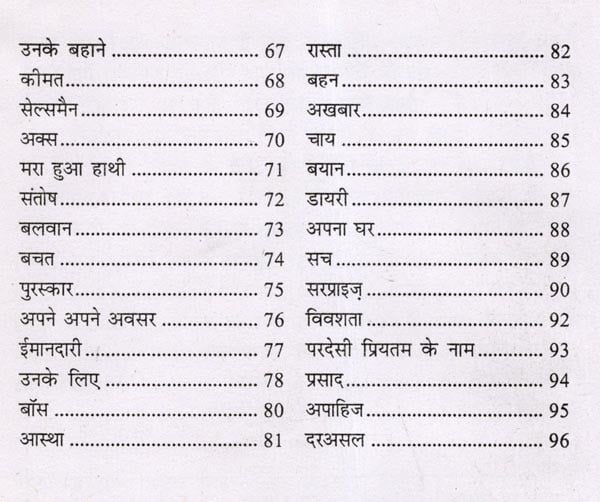 उनके बहाने ........................ 67
कीमत ................................ 68
सेल्समैन ............................ 69
अक्स ................................. 70
मरा हुआ हाथी .................... 71
संतोष ................................ 72
बलवान .............................. 73
बचत ................................. 74
पुरस्कार ............................. 75
अपने अपने अवसर ............... 76
ईमानदारी ........................... 77
उनके लिए .......................... 78
बॉस .................................. 80
आस्था ............................... 81
रास्ता ................................ 82
बहन ................................. 83
अखबार .............................. 84
चाय .................................. 85
बयान ................................ 86
डायरी ................................ 87
अपना घर ........................... 88
सच ................................... 89
सरप्राइज़ ............................ 90
विवशता ............................. 92
परदेसी प्रियतम के नाम ........... 93
प्रसाद ................................ 94
अपाहिज ............................. 95
दरअसल ............................. 96